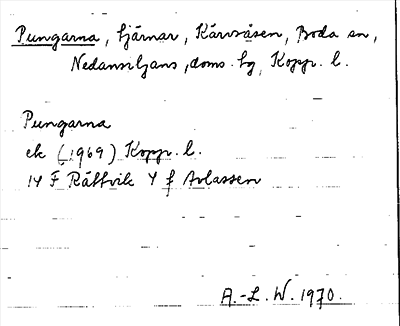 Pungarna, tjärnar, Kårvsåsen, Boda sn,
Nedansiljans doms. hg, Kopp. l.
Pungarna
ek (1969) Kopp. l.
14 F Rättvik 4 f Avlassen
A.-L. W. 1970.